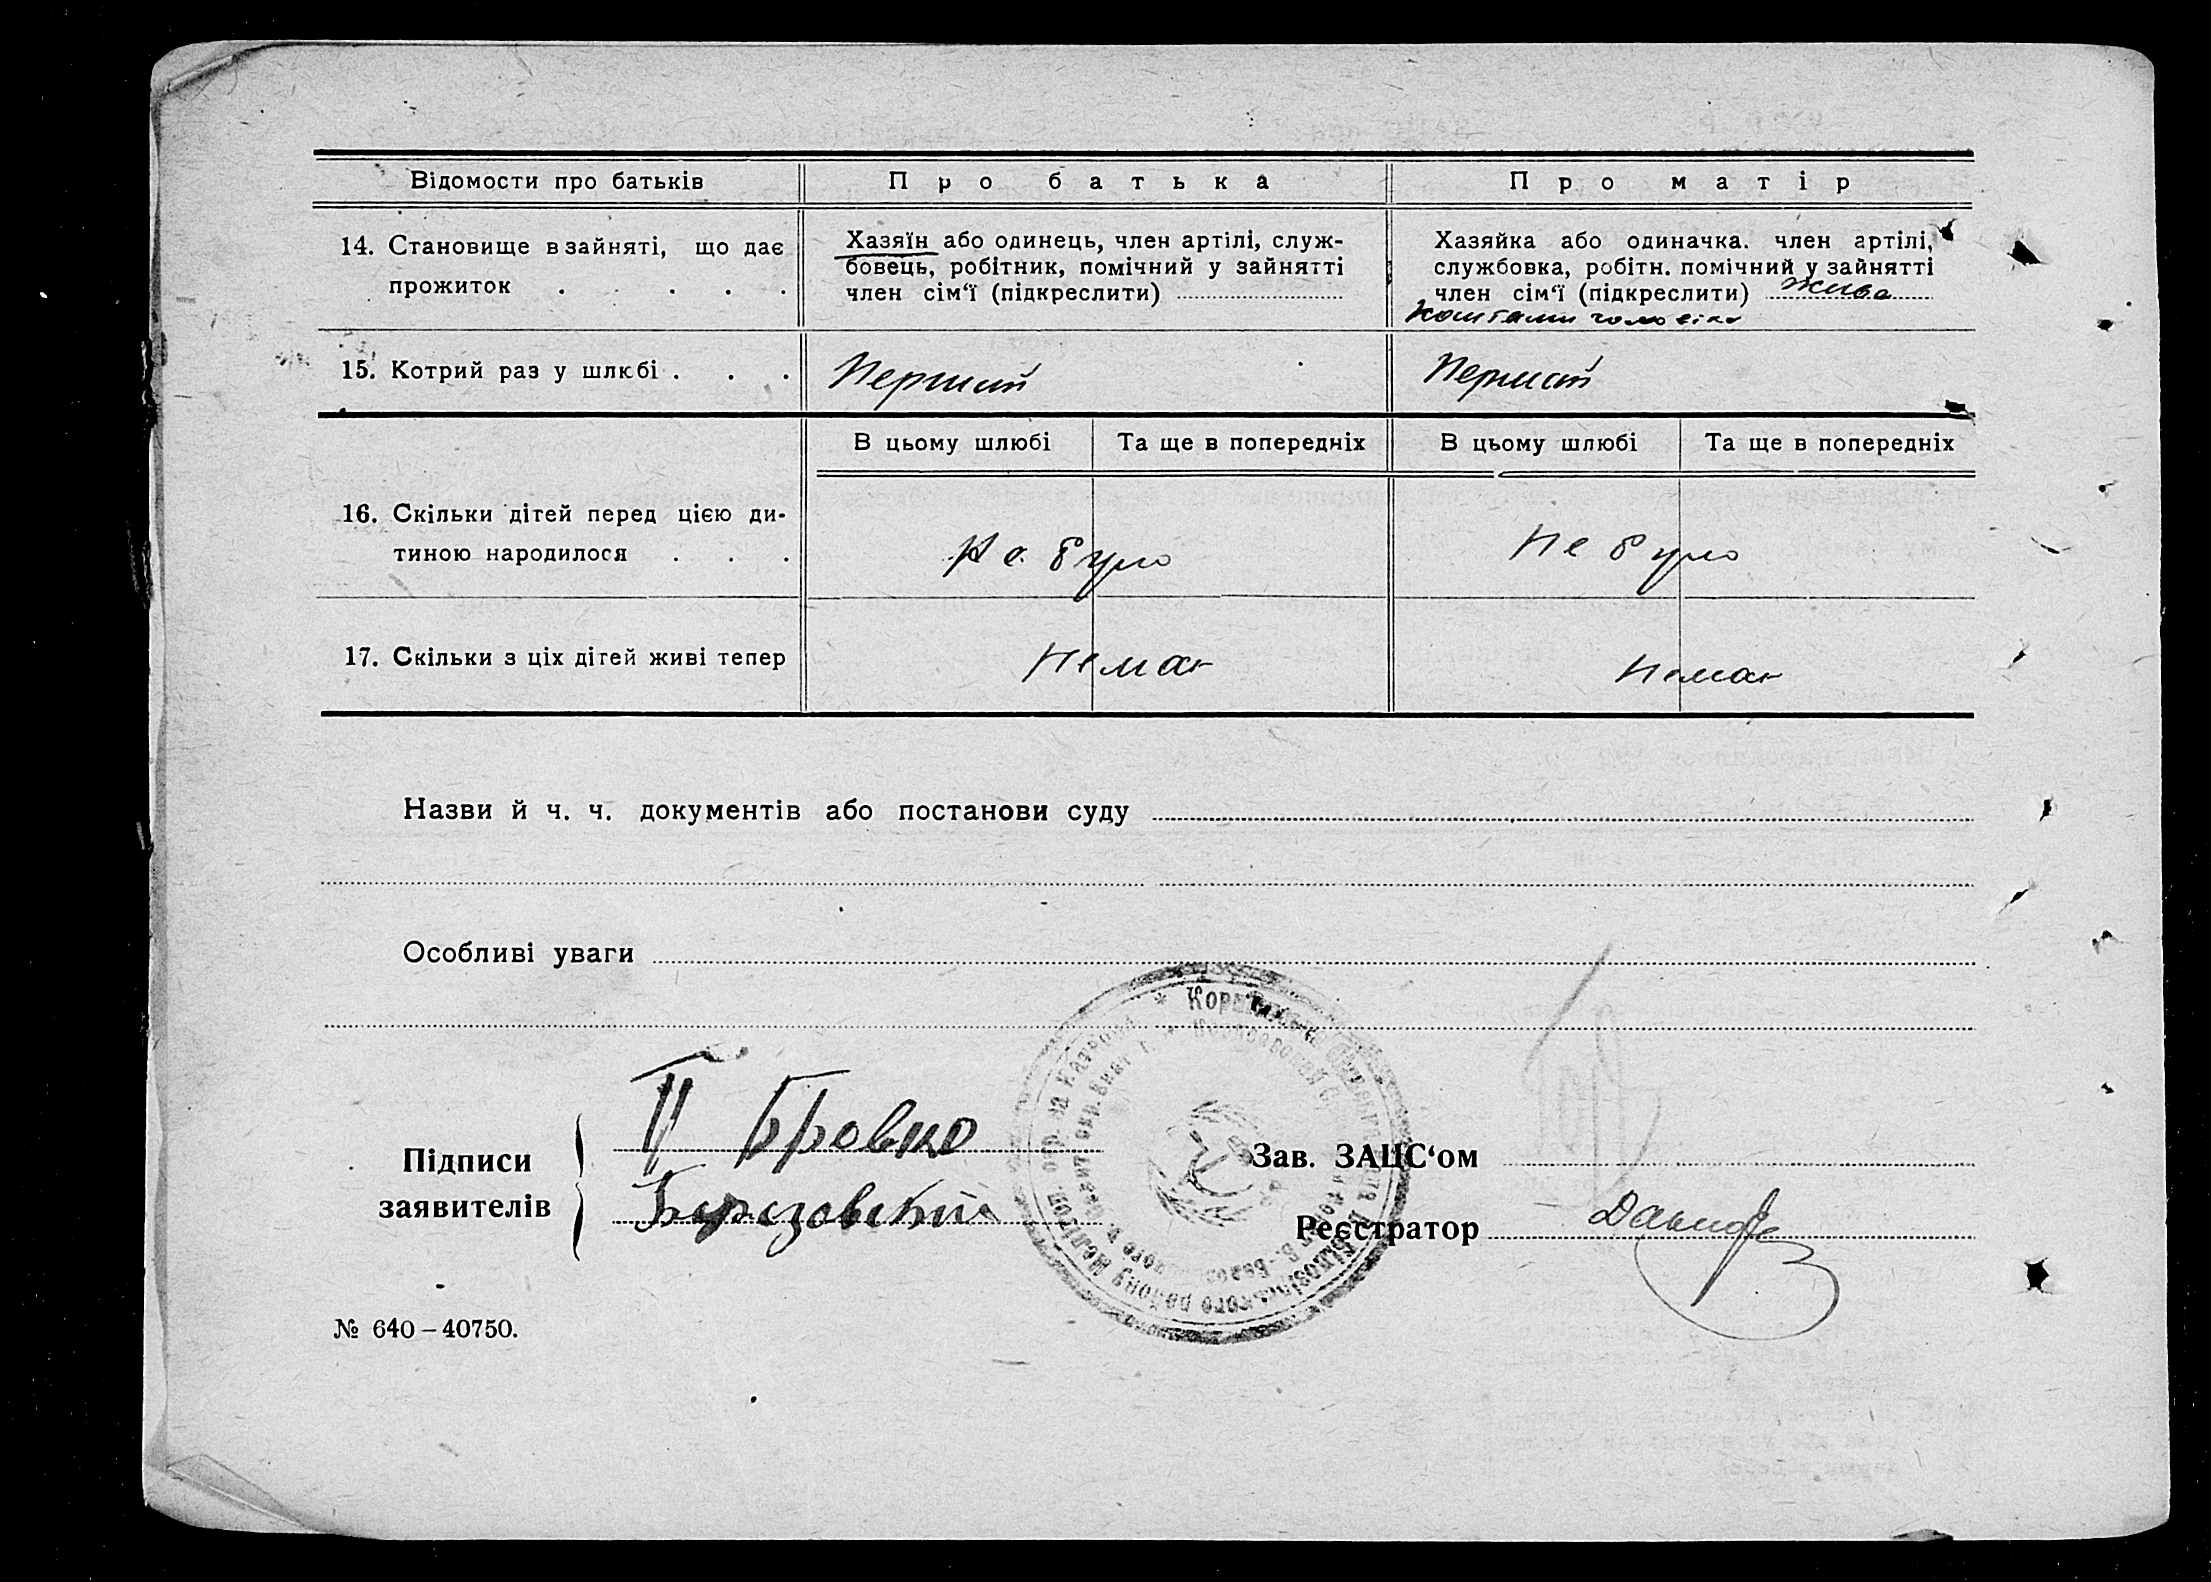 Відомости про батьків Про батька Про матір
14. Становище в зайняті, що дає прожиток . . . . .
Хазяїн або одинець, член артілі, служ-
бовець, робітник, помічний у зайнятті
член сім‘ї (підкреслити)
Хазяйка або одиначка. член артілі,
службовка, робітн. помічний у зайнятті
член сім‘ї (підкреслити) жива
коштами чоловіка
15. Котрий раз у шлюбі . . . Перший Перший
В цьому шлюбі Та ще в попередніх В цьому шлюбі Та ще в попередніх
16. Скільки дітей перед цією ди-
тиною народилося . . . Не було Не було
17. Скільки з ціх дітей живі тепер Немає Немає
Назви й ч. ч. документів або постанови суду
Особливі уваги
Підписи
заявителів
П Бровко
Березовский
Зав. ЗАЦС‘ом
Реєстратор
№ 640–40750.